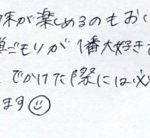 味が楽しめるのもおい
ゴモリが1番大好き
でかけた際には必
ます☺